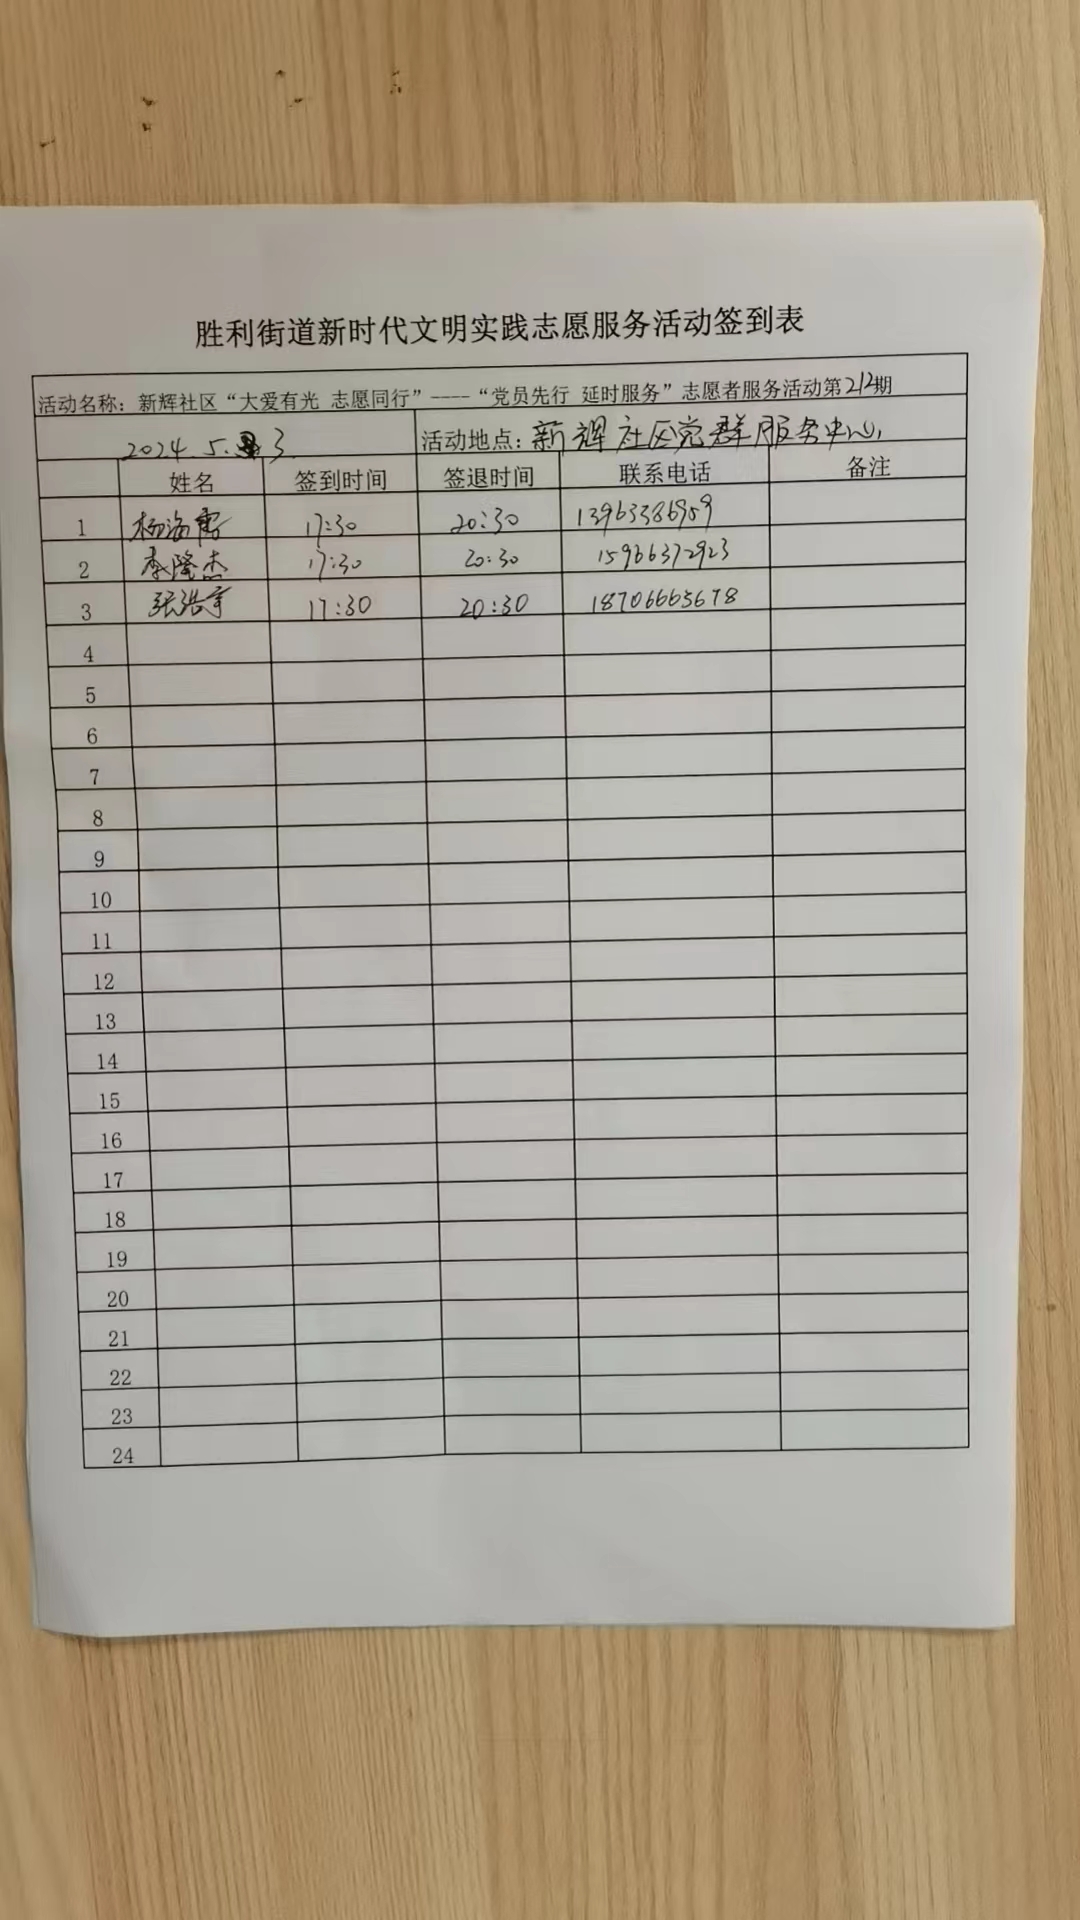 胜利街道新时代文明实践志愿服务活动签到表
活动名称：新辉社区“大爱有光 志愿同行”----“党员先行 延时服务”志愿者服务活动第212期
2024.5.3 活动地点：新辉社区党群服务中心
姓名 签到时间 签退时间 联系电话 备注
1 杨海霞 17:30 20:30 13963386959
2 李隆杰 17:30 20:30 15966372923
3 张浩宇 17:30 20:30 18706665678
4
5
6
7
8
9
10
11
12
13
14
15
16
17
18
19
20
21
22
23
24